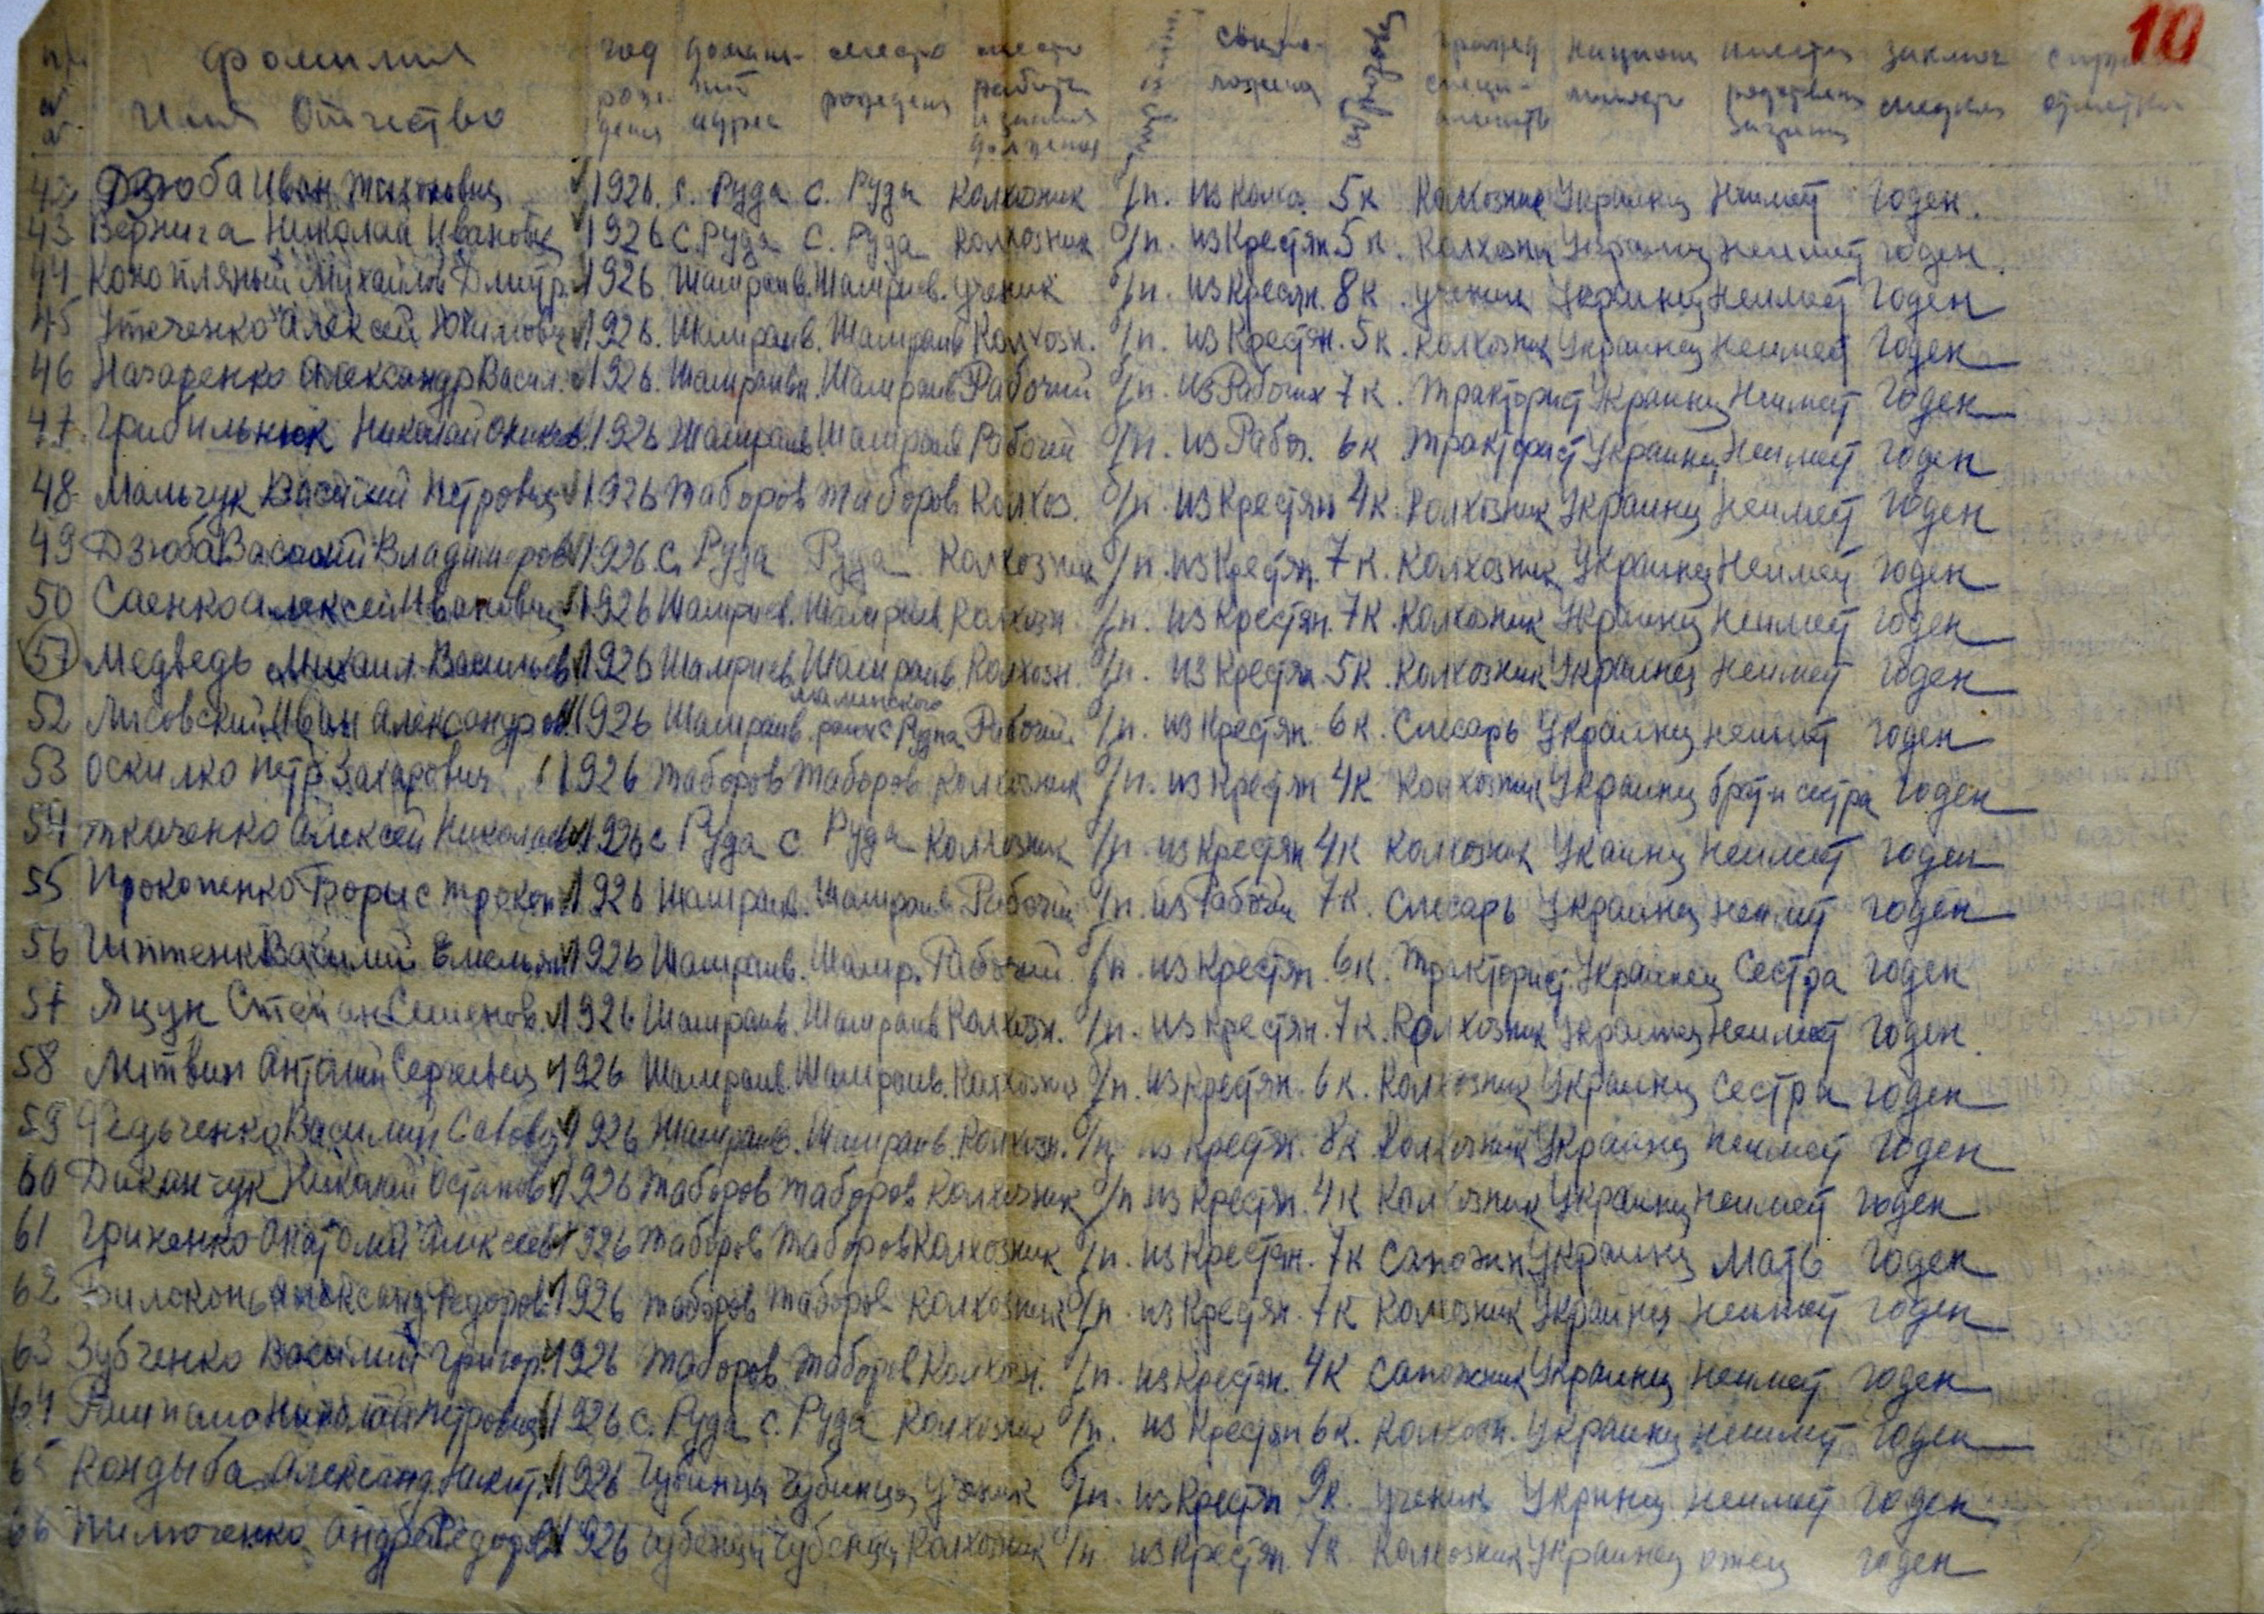 10
фамилия
имя отчество
год рождения
домашний адрес
место рождения
место работы и занимая должность
соц. положена
гражд специальность
националность
имеет родствен заграниц
заключ медком
отметка
42 Дзюба Иван Тихонович 1926. с. Руда с. Руда Колхозник б/п. из Колхо. 5к Колхозник Украинец Неимеет Годен.
43 Вернига Николай Иванович 1926 с. Руда с. Руда Колхозник б/п. из Крестян. 5к. Колхозник Украинец Неимеет годен.
44 Конопляный Михаил Дмитр. 1926. Шамраив. Шамраев. ученик б/п. из Кресян. 8к. ученик Украинец Неимеет Годен
45 Алексей Юхимович 1926. Шамраив. Шамраив Колхозн. б/п. из Крестян. 5к. Колхозник Украинец Неимеет Годен
46 Назаренко Александр Васил. 1926. Шамраивк. Шамраив Рабочий б/п. из Рабочих 7к. Тракторист Украинец Неимеет Годен
47. Грибильнюк Николай 1926 Шамраив. Шамраив Рабочий б/п. из Рабоч. 6к Тракторист Украинец Неимеет Годен
48 Мальчук Василий Петрович 1926 Таборов Таборов Колхоз. б/п. из Крестян 4к. Колхозник Украинец Неимеет Годен
49 Дзюба Василий Владимиров 1926. с. Руда Руда Колхозник б/п. из Крестян. 7к. Колхозник Украинец Неимеет Годен
50 Саенко Алексей Иванович 1926 Шамраев. Шамраив. Колхозн. б/п. из Крестян. 7к. Колхозник Украинец Неимеет годен
51 Медведь Михаил Васильев 1926 Шамраев. Шамраив. Колхозн. б/п. из Крестян 5к. Колхозник Украинец Неимеет Годен
52 Лисовский Иван Александров. 1926 Шамраив. Малинского район с Рудня Рабочий. б/п. из Крестян 6к. Слесарь Украинец неимеет годен
53 Оскилко Петр Захарович 1926 Таборов Таборов Колхозник б/п. из Крестян 4к Колхозник Украинец брат и сестра годен
54 Ткаченко Алексей Николаев. 1926 с Руда с Руда Колхозник б/п. из Крестян 4к Колхозник Укаинец Неимеет годен
55 Прокопенко Борис Прокоп. 1926 Шамраив. Шамраив Рабочий б/п. из Рабочи 7к. Слесарь Украинец Неимеет годен
56 Василий Емельян 1926 Шамраив. Шамр. Рабочий б/п. из Крестян. 6к. Тракторист. Украинец Сестра годен
57 Яцун Степан Семенов. 1926 Шамраив. Шамраив Колхозн. б/п. из Крестян. 7к. Колхозник Украинец Неимеет Годен.
58 Литвин Антоний Сергеевич 1926 Шамраив. Шамраив. Колхозник б/п. из Крестян. 6к. Колхозник Украинец сестра годен
59 Федьченко Василий Савович 1926 Шамраив. Шамраив. Колхозн. б/п. из крестян. 8к Колхозник Украинец Неимеет Годен
60 Диканчук Николай Остапов. 1926 Таборов Таборов Колхозник б/п из Крестян. 4к Колхозник Украинец Неимеет Годен
61 Гриненко Анатолий Аликсеев 1926 Таборов Таборов Колхозник б/п. из Крестян. 7к Сапожн Украинец Мать Годен
62 Билоконь Александ Федоров. 1926 Таборов Таборов Колхозник б/п. из Крестян. 7к Колхозник Украинец Неимеет Годен
63 Зубченко Василий Григор. 1926 Таборов Таборов Колхозн. б/п. из Крестян. 4к Сапожник Украинец Неимеет годен
64 Николай Петрович 1926 с. Руда с. Руда Колхозник б/п. из Крестян 6к. Колхозн. Украинец неимеет годен
65 Кондыба Александ. Никит. 1926 Чубинцы Чубинцы Ученик б/п. из Крестян 9к. ученик Украинец Неимеет годен
66 Пилюченко Андре Федоров 1926 Чубенци Чубенци Колхозник б/п. из Крестян. 7к. Колхозник Украинец отец годен